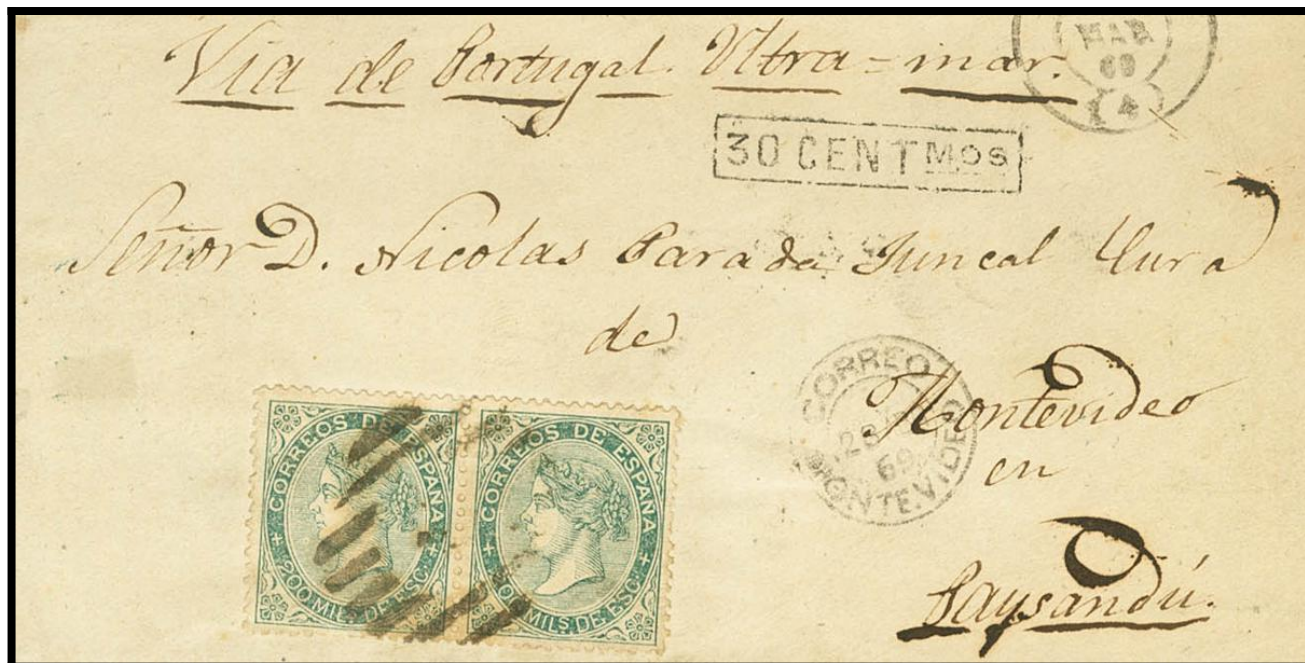 Via de Portugal. Ultra=mar.
MAR
69
(4)
30 CENTMOS
Señor D. Nicolas Parada Juncal Cura
de
Montevideo
en
Paysandú.
CORREO
28
69
MONTEVIDEO
CORREOS DE ESPAÑA
200 MILS. DE ESC.
CORREOS DE ESPAÑA
MILS. DE ESC.